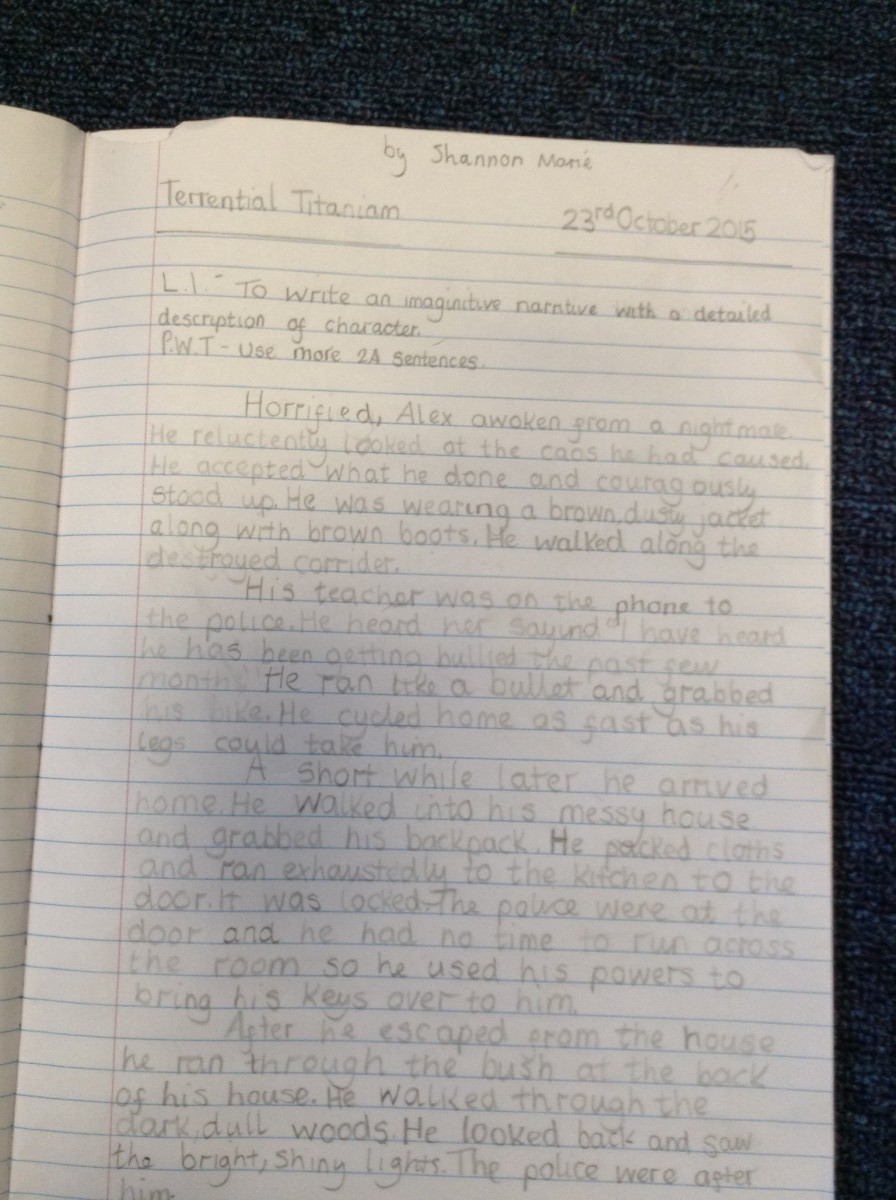 by Shannon Marie
Terrential Titaniam
23rd October 2015
L.I.- To write an imaginitive narntive with a detailed
description of character.
P.W.T - Use more 2A sentences.
Horrified, Alex awoken from a nightmare.
He reluctently looked at the caos he had caused.
He accepted what he done and couragously
stood up. He was wearing a brown, dusty jacket
along with brown boots. He walked along the
destroyed corrider.
His teacher was on the phone to
the police. He heard her sayind "I have heard
he has been getting bullied the past few
months" He ran like a bullet and grabbed
his bike. He cycled home as fast as his
legs could take him.
A short while later he arrived
home. He walked into his messy house
and grabbed his backpack. He packed cloths
and ran exhaustedly to the kitchen to the
door. It was locked. The police were at the
door and he had no time to run across
the room so he used his powers to
bring his keys over to him.
After he escaped from the house
he ran through the bush at the back
of his house. He walked through the
dark, dull woods. He looked back and saw
the bright, shiny lights. The police were after
him.